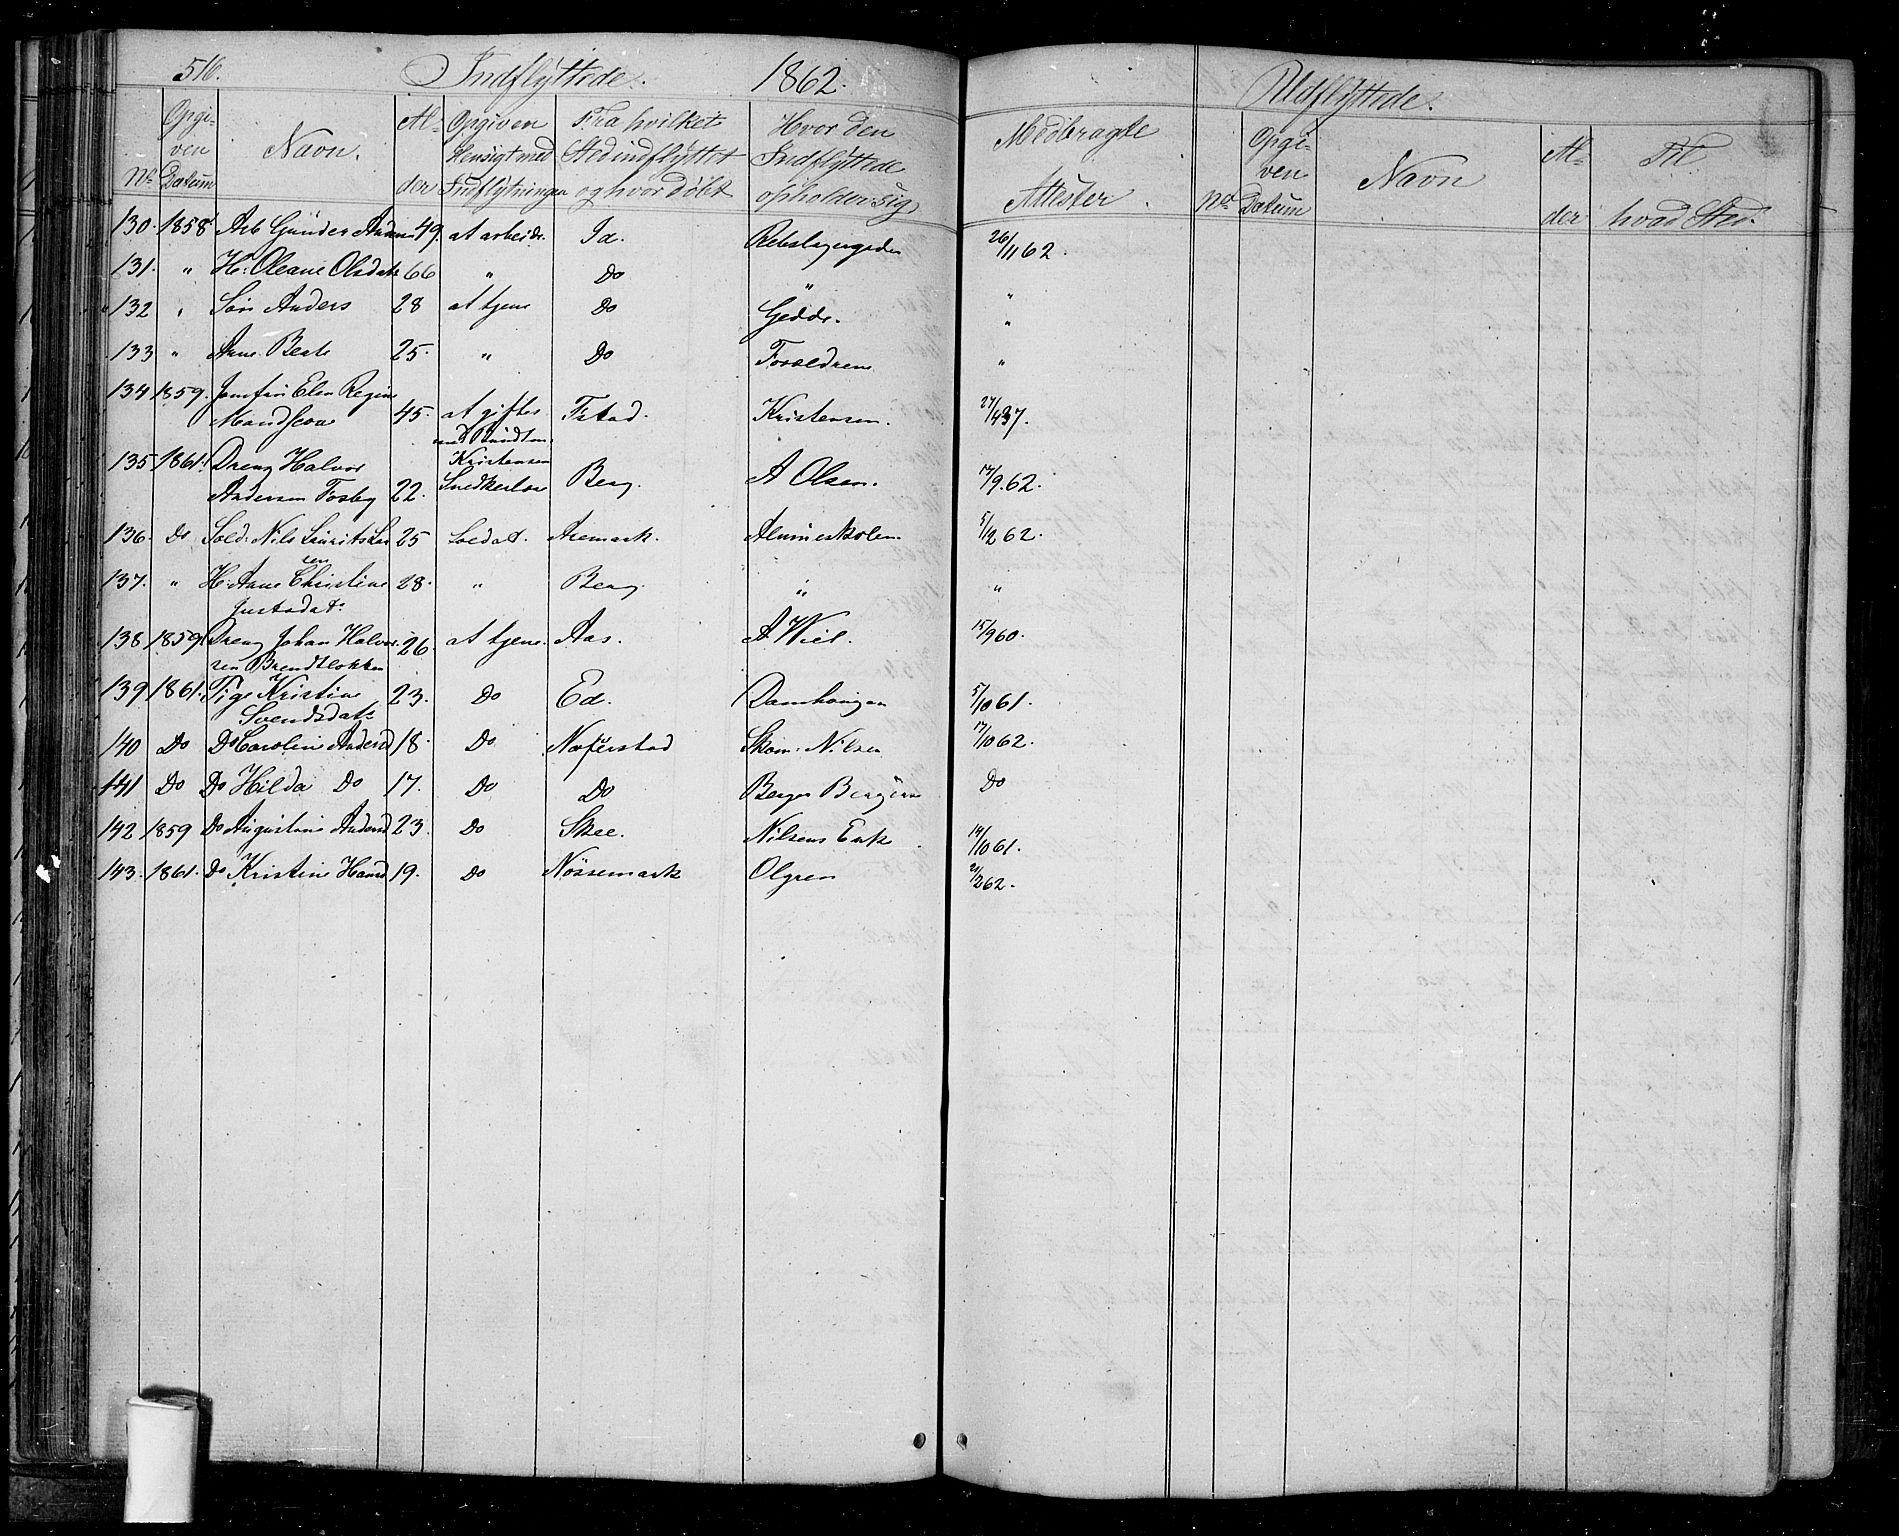 516. Indflyttede. 1862. Udflyttede.
No Opgiven Datum Navn. Alder Opgiven Hensigt med Indflytningen Fra hvilket Sted indflyttet og hvor döbt Hvor den Indflyttede opholder sig Medbragte Attester. No Opgiven Datum Navn Alder Til hvad Sted.
130. 1858 Arb Gunder Anders 49. at arbeide. Id. Rebslagergaden 26/11 62.
131. " H: Oleane Olsdatr 66 " Do "
132 " Sön Anders 28 at tjene Do Gedde. "
133 " Ane Beate 25. " Do Foreldrene "
134 1859. Jomfru Elen Regine
45. at giftes Tistad. Kristensen. 27/4 37.
med
135 1861. Dreng Halvor Kristensen
Andersen Tosby 22. Snedkerlære Berg. A Olsen. 17/9. 62.
136. Do Sold. Nils Lauritz 25 Soldat. Aremark. Almueskolen 5/12 62.
137. " H. Ane Christine 28. " Berg. " "
Justsdat.
138 1859. Dreng Johan Halvor 26. at tjene. Aas. A Wiel. 15/9 60.
sen Brendtlokken
139 1861. Pige Kristine 23. Do Ed. Damhaugen 5/10 61.
Svendsdatr
140 Do Do Caroline Andersd 18. Do Naverstad Skom. Nilsen 17/10 62.
141 Do Do Hilda Do 17. Do Do Berger Do
142 1859 Do Augustine Andersd 23. Do Skee. Nilsens Enke 14/10 61.
143. 1861. Do Kristine Hansd 19. Do Nössemark Olgren 21/2 62.